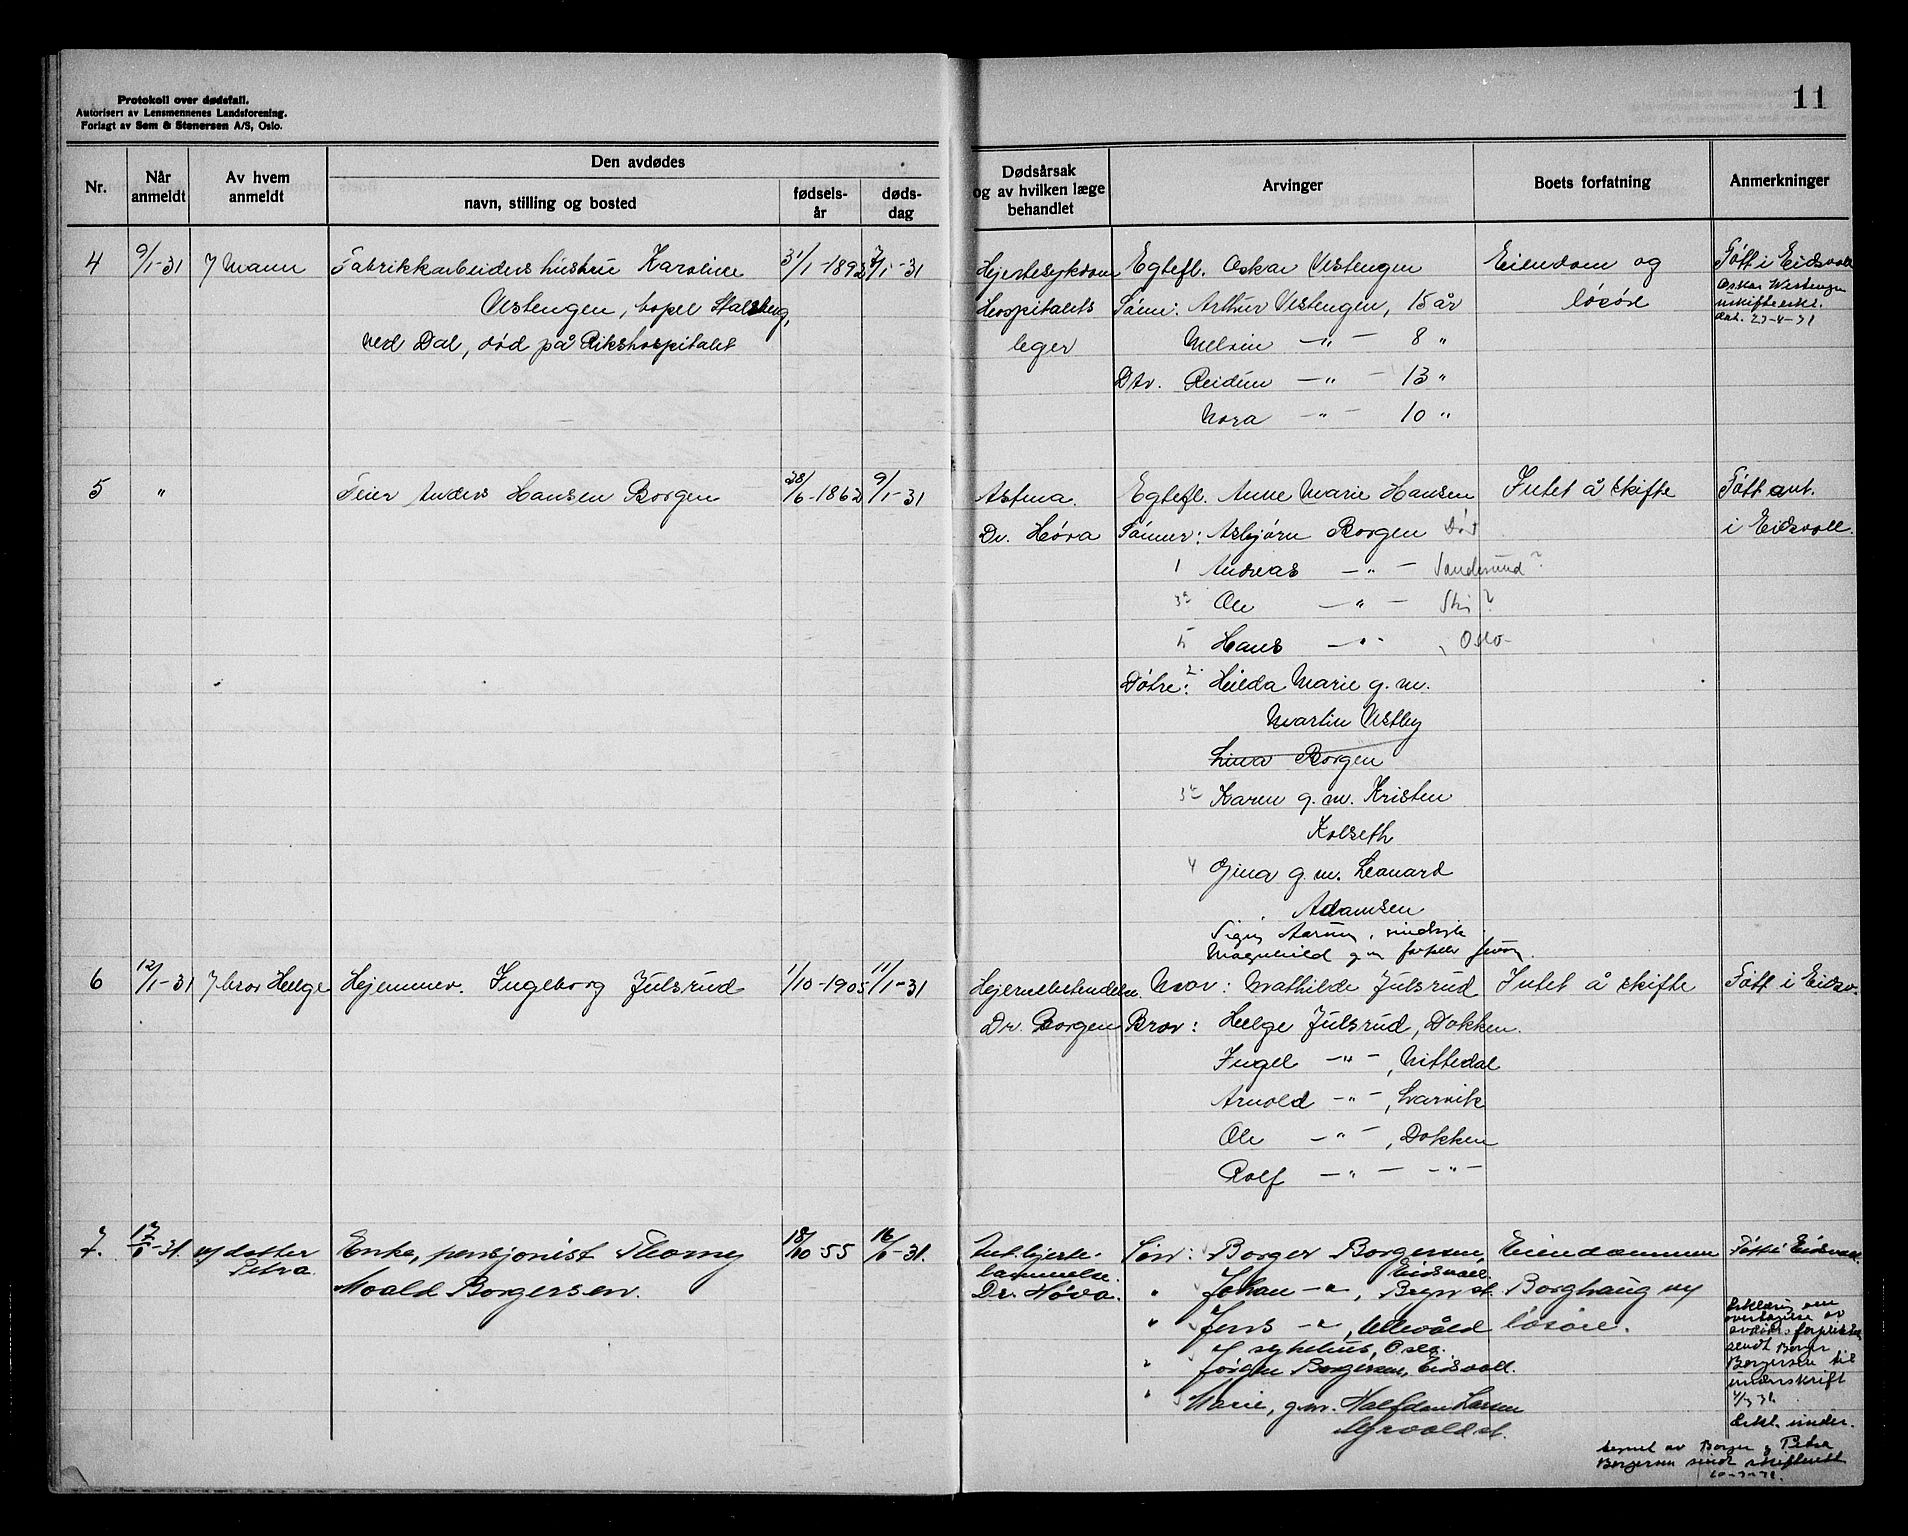 Protokoll over dødsfall.
Autorisert av Lensmennenes Landsforening.
Forlagt av Sem & Stenersen A/S, Oslo.
11
Nr.
Når anmeldt
Av hvem anmeldt
Den avdødes
navn, stilling og bosted
fødselsår
dødsdag
Dødsårsak og av hvilken læge behandlet
Arvinger
Boets forfatning
Anmerkninger
4 9/1-31 Mann Fabrikkarbeiders hustru Karoline 7/1-31
Vestengen, bopel Stalsberg,
ved Dal, død på Rikshospitalet
Hjertesykdom
Hospitalets
leger
Egtefl. Oskar Vestengen
Sønn: Arthur Vestengen, 15 år
Melvin —„— 8 „
Dtr. Reidun —„— 13 „
Nora —„— 10 „
Eiendom og
løsøre
Født i Eidsvoll
Oskar Westengen
uskifteerkl.
dat. 23-4-31
5 „ Feier Anders Hansen Borgen 28/6-1862 9/1-31
Astma.
Dr. Høva
Egtefl. Anne Marie Hansen
Sønner: Asbjørn Borgen Død
1 Andreas —„— Sandesund?
3 Ole —„— Ski?
5 Hans —„— Oslo
Døtre: 2 Hilda Marie g.m.
Martin Vestby
Lina Borgen
3 Karen g.m. Kristen
Kolseth
4 Gina g.m. Leonard
Adamsen
Signy Aarum, sindsyk
Magnhild g.m.
Intet å skifte
Født ant.
i Eidsvoll.
6 12/1-31 bror Helge Hjemmev. Ingeborg Julsrud 1/10-1905 11/1-31
Hjernebetendelse.
Dr. Borgen
Mor: Mathilde Julsrud
Bror: Helge Julsrud, Dokken.
Ingel —„—, Nittedal
Arnold —„—, Larvik
Ole —„—, Dokken
Rolf —„— —„—
Intet å skifte
Født i Eidsv.
7. 17/1-31. datter Enke, pensjonist Thorny 18/10 55 16/1-31.
Petra
Moald Borgersen.
Ant. hjerte-
lammelse.
Dr. Høva.
Søn: Borger Borgersen,
Eidsvoll.
„ Johan —„—, Bryn st.
„ Jens —„—, Ullevåld
sykehus, Oslo.
„ Jørgen Borgersen, Eidsvoll.
„ Marie, g.m. Halfdan Larsen
Eiendommen
Borghaug og
løsøre.
Født i Eidsvoll.
Erklæring om
overtagelse av
avdødes forpliktelser
sendt Borger
Borgersen til
underskrift
Erkl. under.
tegnet av Borger og Petra
Borgersen sendt skifterett
20-3-31